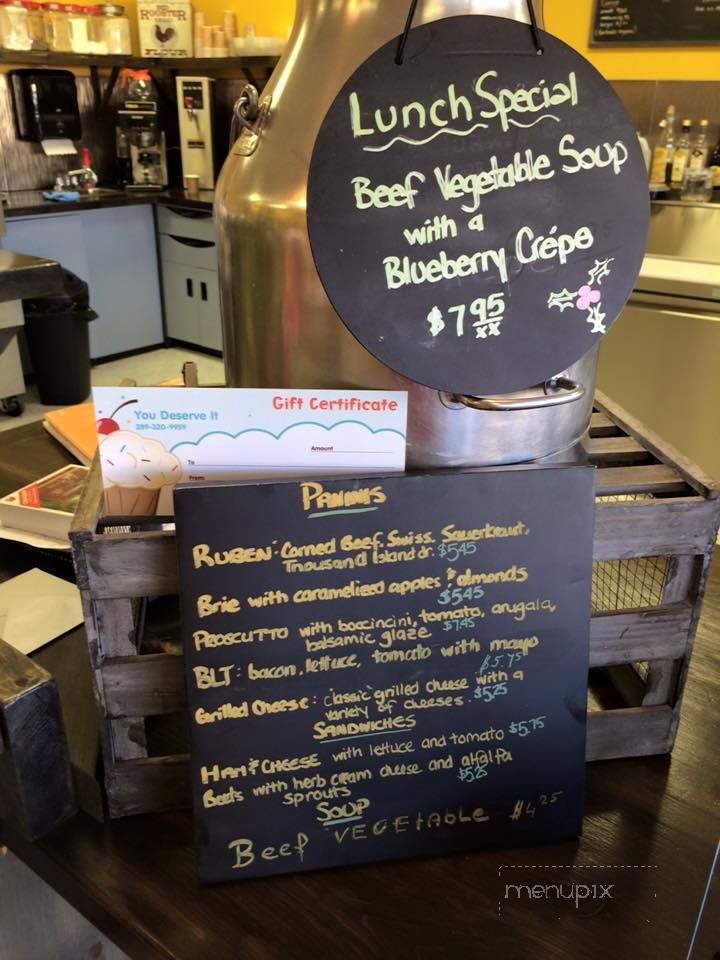 ROOSTER
Lunch Special
Beef Vegetable Soup
with a
Blueberry Crépe
$7 95
xx
Gift Certificate
You Deserve It
289-320-9959
Amount
To
From
PANINIS
RUBEN: Corned Beef, Swiss, Sauerkraut,
Thousand Island dr. $5.45
Brie with caramelized apples & almonds
$5.45
PROSCUTTO with boccincini, tomato, arugala,
balsamic glaze $7.45
BLT: bacon, lettuce, tomato with mayo
$5.75
Grilled Cheese: classic grilled cheese with a
variety of cheeses. $5.25
SANDWICHES
HAM & CHEESE with lettuce and tomato $5.75
Beets with herb cream cheese and alfalfa
sprouts $5.25
SOUP
Beef VEGETABLE $4.25
menupix